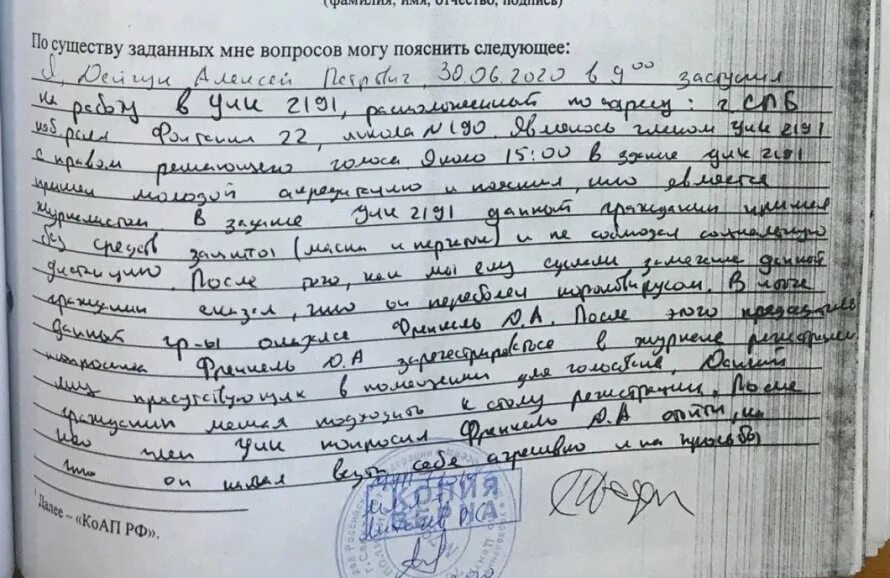 (фамилия, имя, отчество, подпись)
По существу заданных мне вопросов могу пояснить следующее:
Я, Алексей Петрович, 30.06.2020 в 9⁰⁰ заступил
на работу в УИК 2191, расположенный по адресу: г. СПБ
наб. реки Фонтанки 22, школа №190. Являюсь членом УИК 2191
с правом решающего голоса. Около 15:00 в здание УИК 2191
пришел молодой и пояснил, что является
журналистом. В здание УИК 2191 данный гражданин пришел
без средств защиты (маски и перчаток) и не соблюдал социальную
дистанцию. После того, как мы ему сделали замечание данный
гражданин сказал, что он переболел коронавирусом. В итоге
данный гр-н оказался Френкель Д.А. После этого председатель
попросила Френкель Д.А зарегестрироваться в журнале регистрации
лиц присутствующих в помещении для голосования. Данный
гражданин мешал подходить к столу регистрации. После
член УИК попросил Френкель Д.А отойти, на
что он начал вести себя агресивно и на просьбы
¹ Далее – «КоАП РФ».
КОПИЯ
ВЕРНА